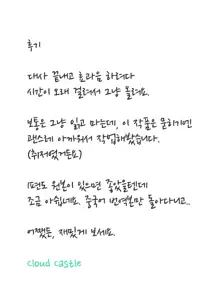 후기
대사 끝내고 효과음 하려다
시간이 오래 걸려서 그냥 올려요.
보통은 그냥 읽고 마는데, 이 작품은 묻히기엔
괜스레 아까워서 작업해봤습니다.
(취저였거든요)
1편도 원본이 있으면 좋았을텐데
조금 아쉽네요. 중국어 번역본만 돌아다니고..
어쨌든, 재밌게 보세요.
cloud castle